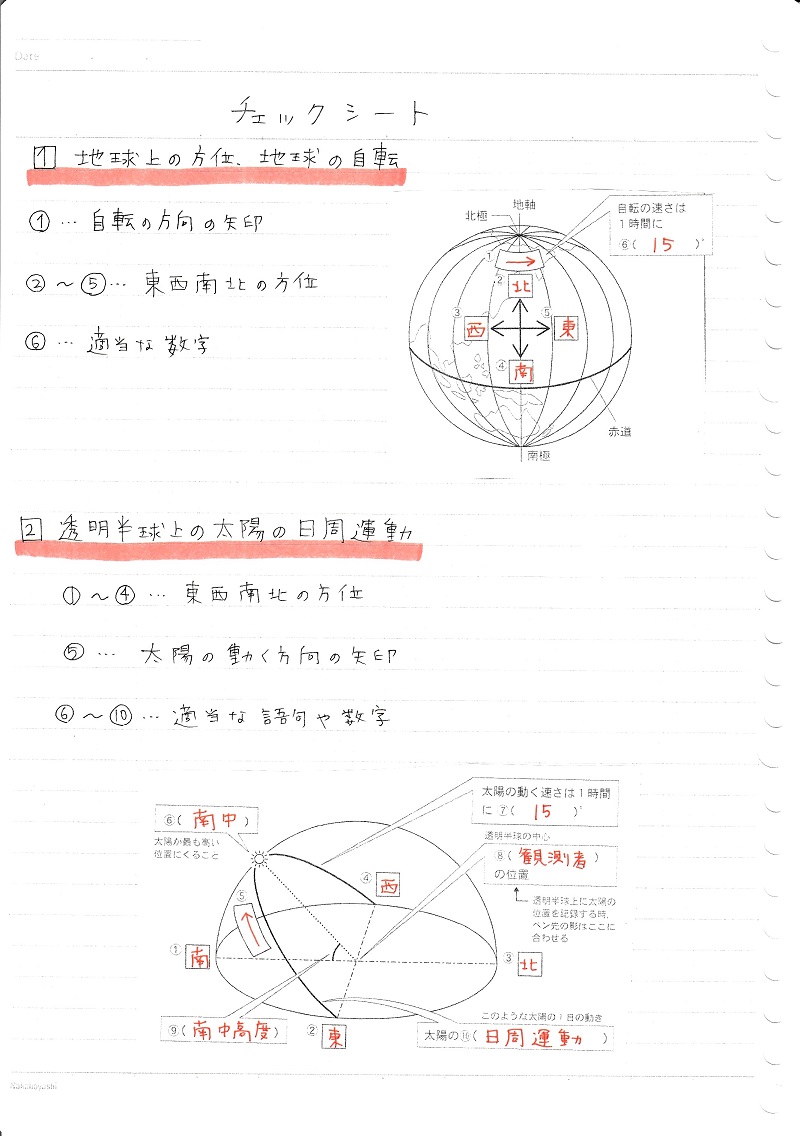 Date
チェックシート
1 地球上の方位、地球の自転
① … 自転の方向の矢印
② ～ ⑤ … 東西南北の方位
⑥ … 適当な数字
地軸
北極
自転の速さは
1時間に
⑥( 15 )°
①
→
② 北
③ 西
⑤ 東
④ 南
赤道
南極
2 透明半球上の太陽の日周運動
① ～ ④ … 東西南北の方位
⑤ … 太陽の動く方向の矢印
⑥ ～ ⑩ … 適当な語句や数字
太陽の動く速さは1時間
に⑦( 15 )°
⑥( 南中 )
太陽が最も高い
位置にくること
透明半球の中心
⑧( 観測者 )
の位置
透明半球上に太陽の
位置を記録する時,
ペン先の影はここに
合わせる
④ 西
⑤
① 南
③ 北
⑨( 南中高度 )
② 東
このような太陽の1日の動き
太陽の⑩( 日周運動 )
Nakabayashi